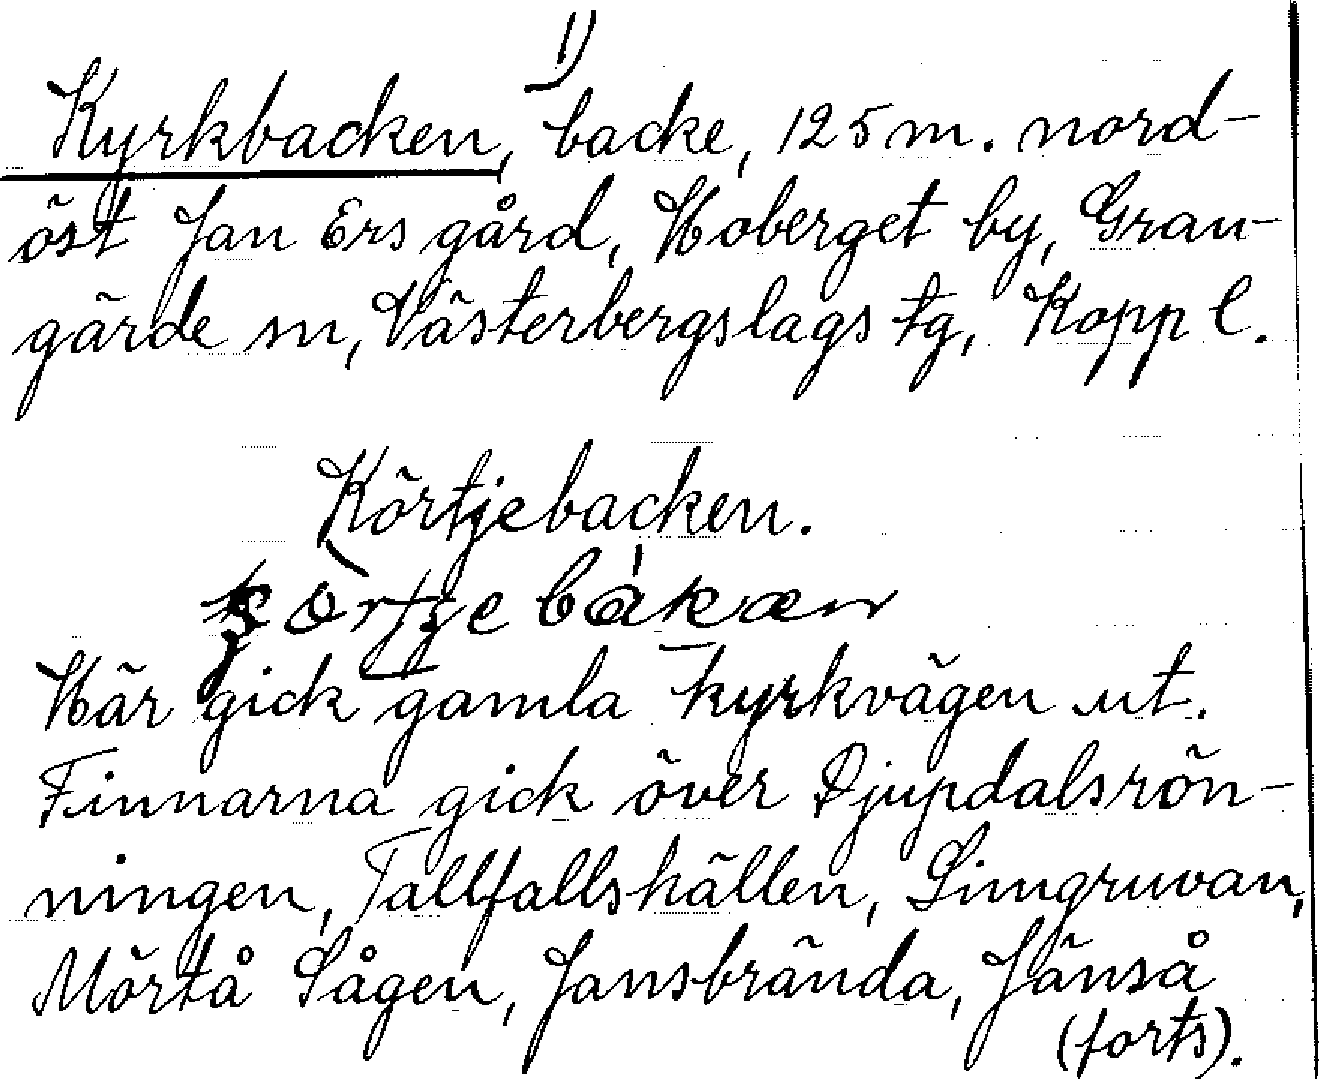 1)
Kyrkbacken, backe, 125 m. nord-
öst Jan Ers gård, Hoberget by, Gran-
gärde sn, Västerbergslags tg, Kopp l.
Körtjebacken.
Här gick gamla kyrkvägen ut.
Finnarna gick över Djupdalsrön-
ningen, Tallfallshällen, Limgruvan,
Mörtå Sågen, Jansbrända, Jänså
(forts).